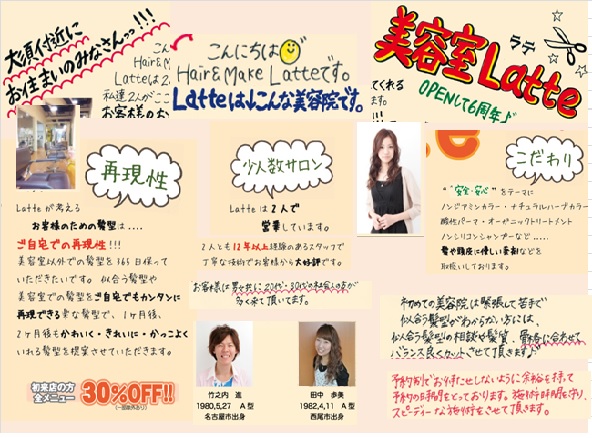 大須付近に
お住まいのみなさんっっ!!!
こんにちは
Hair&Make Latteです。
Latteは↓こんな美容院です。
美容室Latte
ラテ
OPENして6周年♪
再現性
Latteが考える
お客様のための髪型は....
ご自宅での再現性!!!
美容室以外での髪型を165日保って
いただきたいです。似合う髪型や
美容室での髪型をご自宅でもカンタンに
再現できる楽な髪型で、1ヶ月後、
2ヶ月後もかわいく・きれいに・かっこよく
いれる髪型を提案させていただきます。
初来店の方
全メニュー
30%OFF!!
少人数サロン
Latteは2人で
営業しています。
2人とも12年以上経験のあるスタッフで
丁寧な技術でお客様から大好評です。
お客様は男女共に20代・30代の社会人の方が
多く来て頂いてます。
竹之内 進
1980,5,27 A型
名古屋市出身
田中 歩美
1982,4,11 A型
西尾市出身
こだわり
"安全・安心"をテーマに
ノンジアミンカラー・ナチュラルハーブカラー
酸性パーマ・オーガニックトリートメント
ノンシリコンシャンプーなど.....
髪や頭皮に優しい薬剤などを
取扱いしております。
初めての美容院は緊張して苦手で
似合う髪型がわからない方には、
似合う髪型の相談や髪質、骨格に合わせて
バランス良くカットさせて頂きます♪
予約制でお待たせしないように余裕を持って
予約の時間をとっております。施術時間を守り、
スピーディーな施術をさせて頂きます。